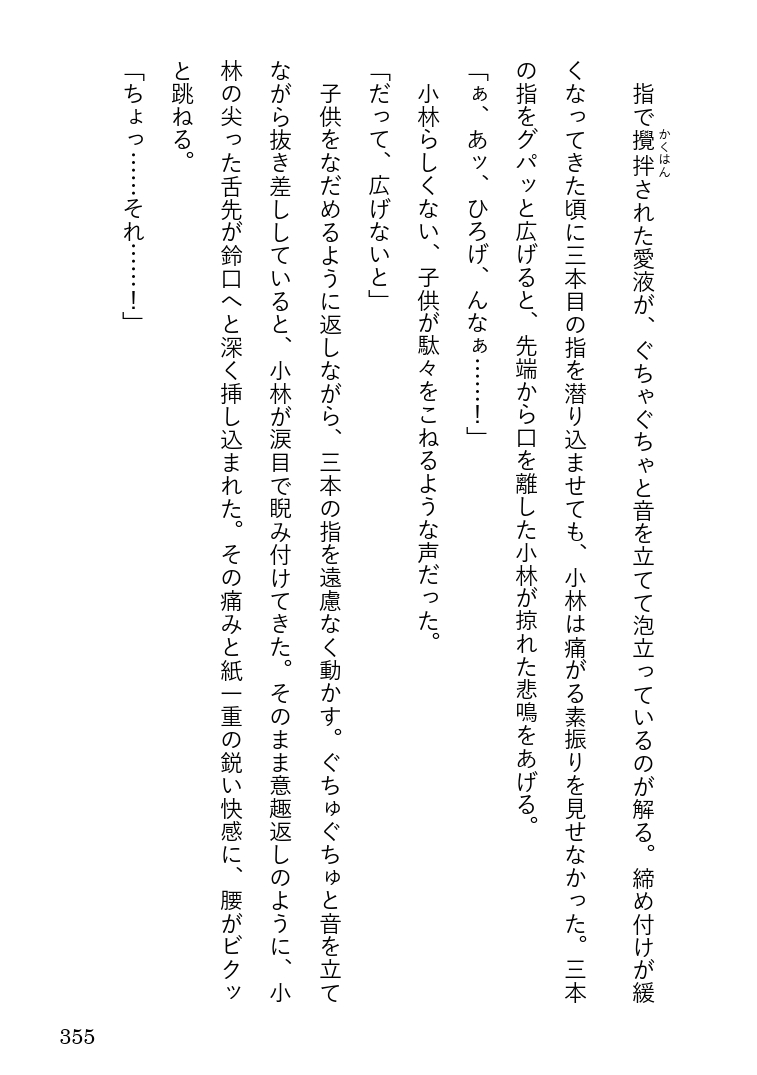 指で攪拌された愛液が、ぐちゃぐちゃと音を立てて泡立っているのが解る。締め付けが緩
かくはん
くなってきた頃に三本目の指を潜り込ませても、小林は痛がる素振りを見せなかった。三本
の指をグパッと広げると、先端から口を離した小林が掠れた悲鳴をあげる。
「ぁ、あッ、ひろげ、んなぁ……！」
小林らしくない、子供が駄々をこねるような声だった。
「だって、広げないと」
子供をなだめるように返しながら、三本の指を遠慮なく動かす。ぐちゅぐちゅと音を立て
ながら抜き差ししていると、小林が涙目で睨み付けてきた。そのまま意趣返しのように、小
林の尖った舌先が鈴口へと深く挿し込まれた。その痛みと紙一重の鋭い快感に、腰がビクッ
と跳ねる。
「ちょっ……それ……！」
355